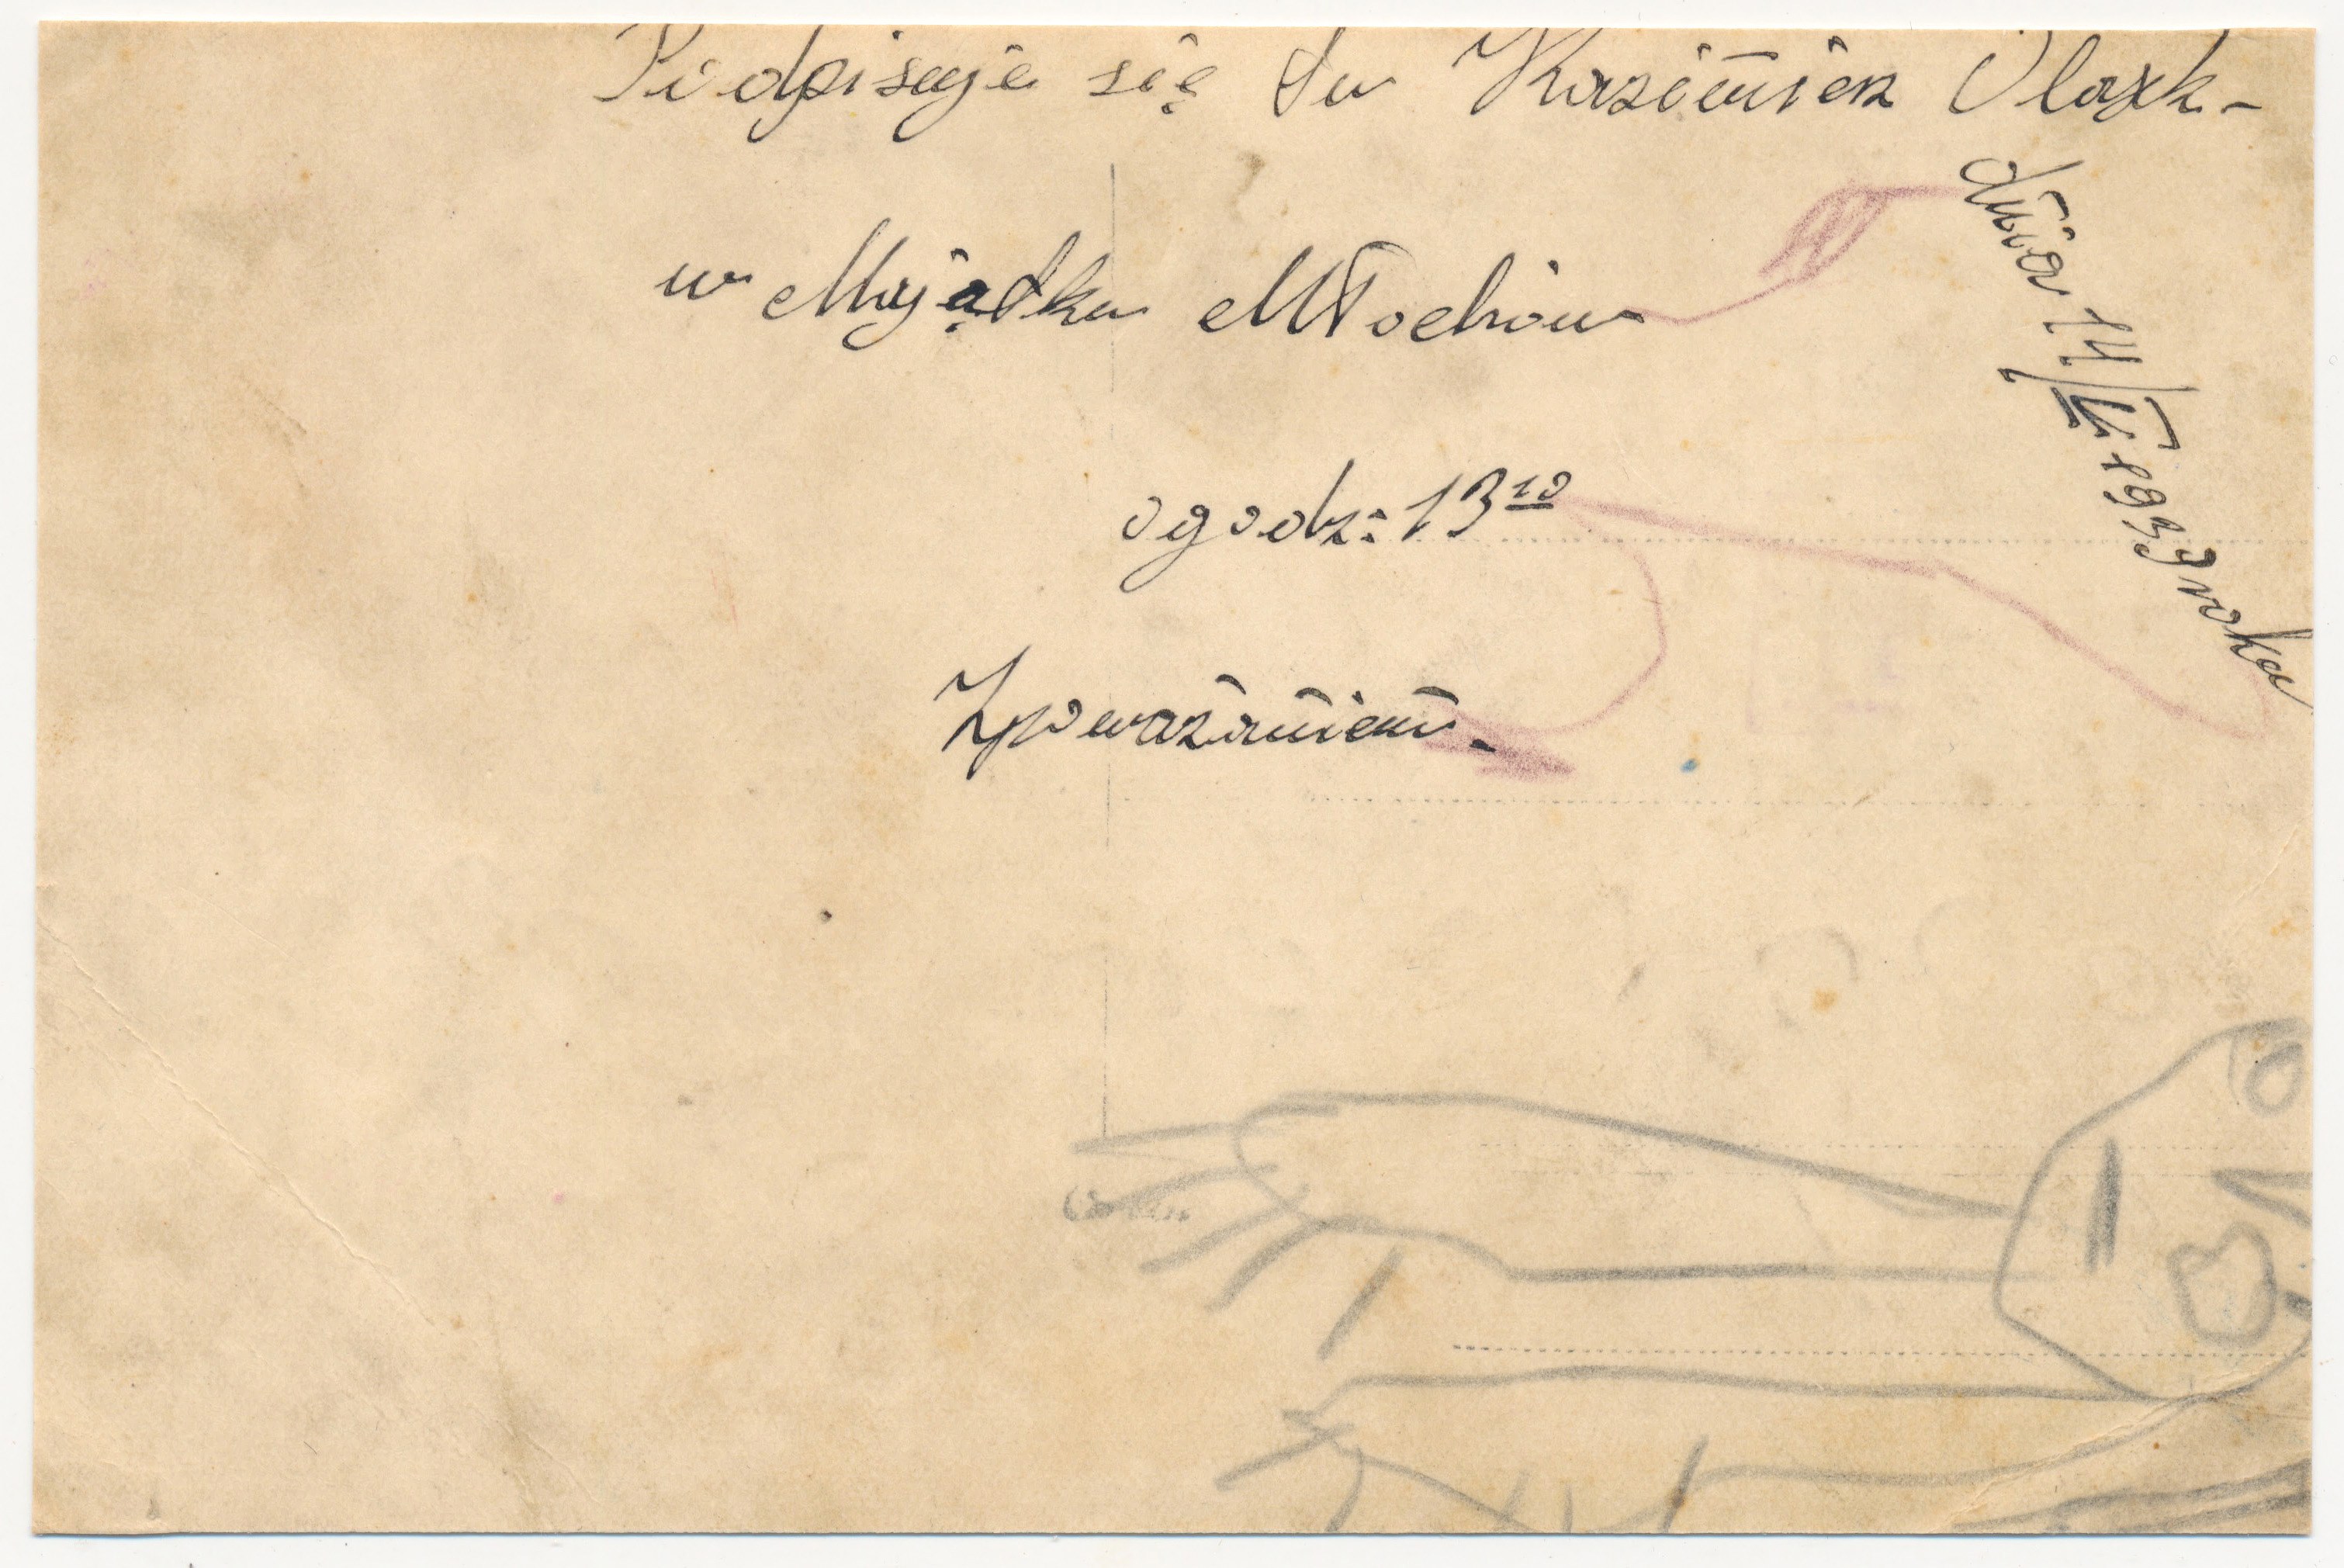 Podpisuje się tu Kazimierz Olaxk-
w Majątku Młochów
ogodz: 13 10
Zpoważaniem.
dnia 14/VI 1939 roku